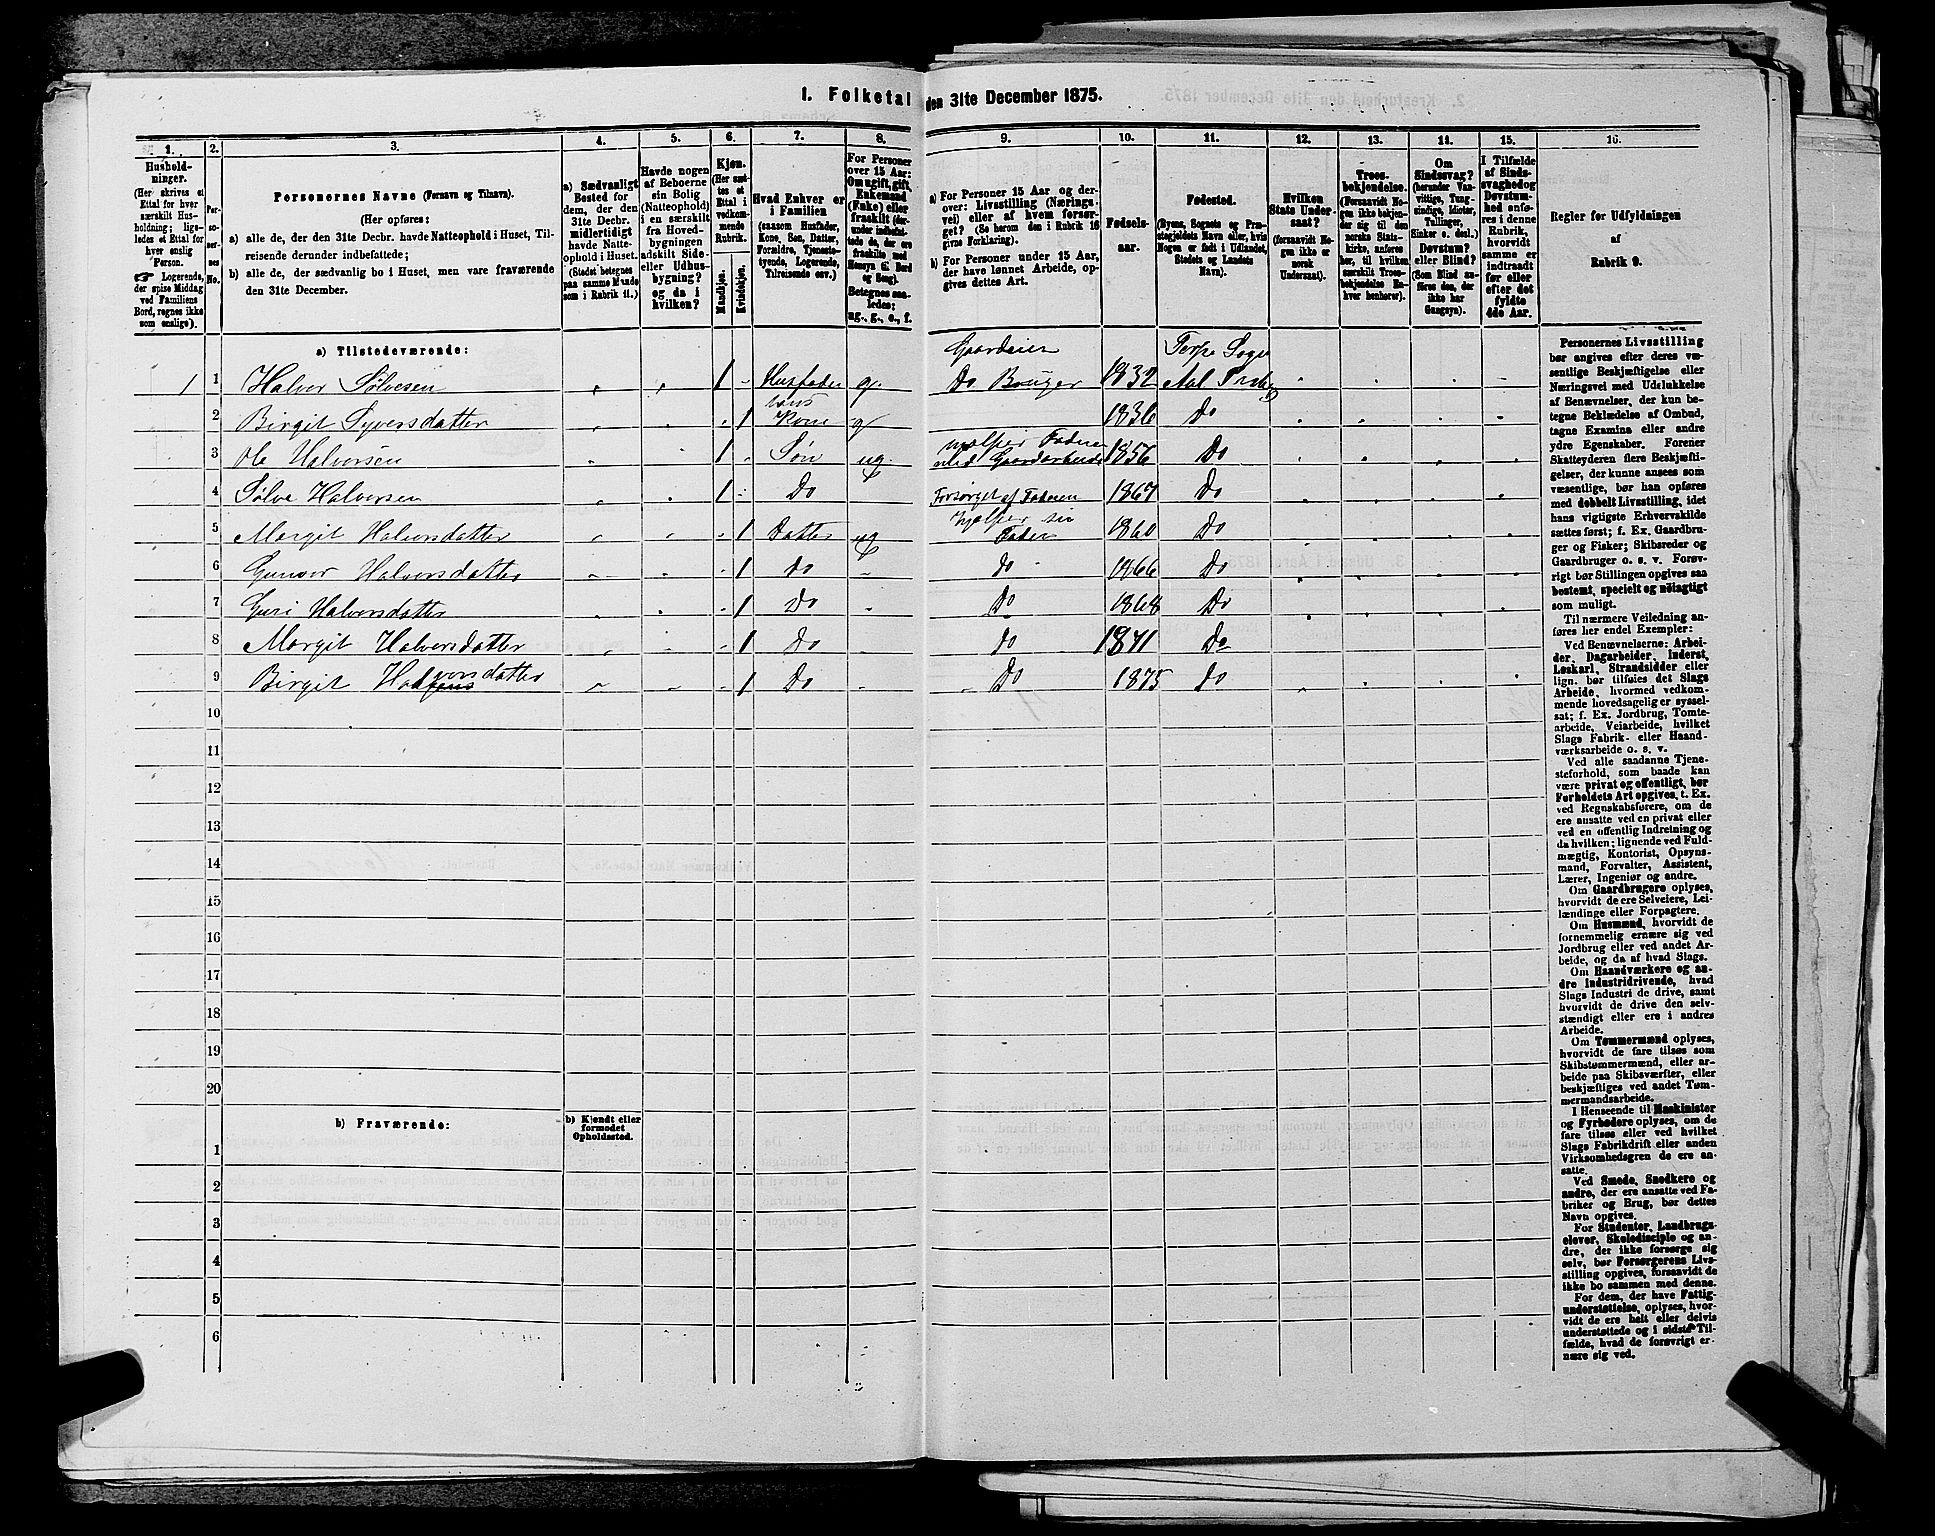 1. Folketal den 31te December 1875.
1. 2. 3. 4. 5. 6. 7. 8. 9. 10. 11. 12. 13. 14. 15. 16.
Hushold-
ninger.
(Her skrives et
Ettal for hver
særskilt Hus-
holdning; lige-
ledes et Ettal for
enslig
Person.
☞ Logerende,
der spise Middag
ved Familiens
Bord, regnes ikke
som enslige).
Per-
so-
ner-
nes
No.
Personernes Navne (Fornavn og Tilnavn).
(Her opføres:
a) alle de, der den 31te Decbr. havde Natteophold i Huset, Til-
reisende derunder indbefattede;
b) alle de, der sædvanlig bo i Huset, men vare fraværende
den 31te December.
a) Sædvanligt
Bosted for
dem, der den
31te Decbr.
midlertidigt
havde Natte-
ophold i Huset.
(Stedet betegnes
paa samme Maade
som i Rubrik 11.)
Havde nogen
af Beboerne
sin Bolig
(Natteophold)
i en særskilt
fra Hoved-
bygningen
adskilt Side-
eller Udhus-
bygning?
og da i
hvilken?
Kjøn.
(Her sæt-
tes et
Ettal i
vedkom-
mende
Rubrik.
Mandkjøn.
Kvindekjøn.
Hvad Enhver er
i Familien
(saasom Husfader,
Kone, Søn, Datter,
Forældre, Tjeneste-
tyende, Logerende,
Tilreisende osv.)
For Personer
over 15 Aar:
Om ugift, gift,
Enkemand
(Enke) eller
fraskilt (der-
under indbefat-
tede de, der ere
fraskilte med
Hensyn til Bord
og Seng).
Betegnes saa-
ledes:
ug., g., e., f.
a) For Personer 15 Aar og der-
over: Livsstilling (Nærings-
vei) eller af hvem forsør-
get? (Se herom den i Rubrik 16
givne Forklaring).
b) For Personer under 15 Aar,
der have lønnet Arbeide, op-
gives dettes Art.
Fødsels-
aar.
Fødested.
(Byens, Sognets og Præ-
stegjeldets Navn eller, hvis
Nogen er født i Udlandet,
Stedets og Landets
Navn).
Hvilken
Stats Under-
saat?
(forsaavidt No-
gen ikke er
norsk
Undersaat).
Troes-
bekjendelse.
(Forsaavidt No-
gen ikke bekjen-
der sig til den
norske Stats-
kirke, anføres
her, til hvilken
særskilt Troes-
bekjendelse En-
hver henhører).
Om
Sindssvag?
(herunder Van-
vittige, Tung-
sindige, Idioter,
Tullinger,
Sinker o. desl.)
Døvstum?
eller Blind?
(Som Blind an-
føres den, der
ikke har
Gangsyn).
I Tilfælde
af Sinds-
svaghed og
Døvstum-
hed anfø-
res i denne
Rubrik,
hvorvidt
samme er
indtraadt
før eller
efter det
fyldte
4de Aar.
Regler for Udfyldningen
af
Rubrik 9.
a) Tilstedeværende:
Gaardeier Torpe Sogn
1 1 Halvor Sølvesen 1 Husfader g. Do Bruger 1832 Aal
hans
2 Birgit Syversdatter 1 Kone g 1836 Do
hjælper Faderen
3 Ole Halvorsen 1 Søn ug. med Gaardarbeide 1856 Do
4 Sølve Halvorsen 1 Do Forsørget af Faderen 1867 Do
hjælper sin
5 Margit Halvorsdatter 1 Datter ug Fader 1860 Do
6 Gunvor Halvorsdatter 1 Do Do 1866 Do
7 Guri Halvorsdatter 1 Do Do 1868 Do
8 Margit Halvorsdatter 1 Do Do 1871 Do
9 Birgit Halvorsdatter 1 Do Do 1875 Do
10
11
12
13
14
15
16
17
18
19
20
b) Fraværende:
b) Kjendt eller
formodet
Opholdssted.
1
2
3
4
5
6
Personernes Livsstilling
bør angives efter deres væ-
sentlige Beskjæftigelse eller
Næringsvei med Udelukkelse
af Benævnelser, der kun be-
tegne Beklædelse af Ombud,
tagne Examina eller andre
ydre Egenskaber. Forener
Skatteyderen flere Beskjæfti-
gelser, der kunne ansees som
væsentlige, bør han opføres
med dobbelt Livsstilling, idet
hans vigtigste Erhvervskilde
sættes først; f. Ex. Gaardbru-
ger og Fisker; Skibsreder og
Gaardbruger o. s. v. Forøv-
rigt bør Stillingen opgives saa
bestemt, specielt og nøiagtigt
som muligt.
Til nærmere Veiledning an-
føres her endel Exempler:
Ved Benævnelserne: Arbei-
der, Dagarbeider, Inderst,
Løskarl, Strandsidder eller
lign. bør tilføies det Slags
Arbeide, hvormed vedkom-
mende hovedsagelig er syssel-
sat; f. Ex. Jordbrug, Tomte-
arbeide, Veiarbeide, hvilket
Slags Fabrik- eller Haand-
værksarbeide o. s. v.
Ved alle saadanne Tjene-
steforhold, som baade kan
være privat og offentligt, bør
Forholdets Art opgives, t. Ex.
ved Regnskabsførere, om de
ere ansatte ved en privat eller
ved en offentlig Indretning og
da hvilken; lignende ved Fuld-
mægtig, Kontorist, Opsyns-
mand, Forvalter, Assistent,
Lærer, Ingeniør og andre.
Om Gaardbrugere oplyses,
hvorvidt de ere Selveiere, Lei-
lændinge eller Forpagtere.
Om Husmænd, hvorvidt de
fornemmelig ernære sig ved
Jordbrug eller ved andet Ar-
beide, og da af hvad Slags.
Om Haandværkere og an-
dre Industridrivende, hvad
Slags Industri de drive, samt
hvorvidt de drive den selv-
stændigt eller ere i andres
Arbeide.
Om Tømmermænd oplyses,
hvorvidt de fare tilsøs som
Skibstømmermænd, eller ar-
beide paa Skibsværfter, eller
beskjæftiges ved andet Tøm-
mermandsarbeide.
I Henseende til Maskinister
og Fyrbødere oplyses, om de
fare tilsøs eller ved hvilket
Slags Fabrikdrift eller anden
Virksomhedsgren de ere an-
satte.
Ved Smede, Snedkere og
andre, der ere ansatte ved Fa-
briker og Brug, bør dettes
Navn opgives.
For Studenter, Landbrugs-
elever, Skoledisciple og an-
dre, der ikke forsørge sig
selv, bør Forsørgerens Livs-
stilling opgives, forsaavidt de
ikke bo sammen med denne.
For dem, der have Fattig-
understøttelse, oplyses, hvor-
vidt de ere helt eller delvis
understøttede og i sidste Til-
fælde, hvad de forøvrigt er-
nære sig ved.